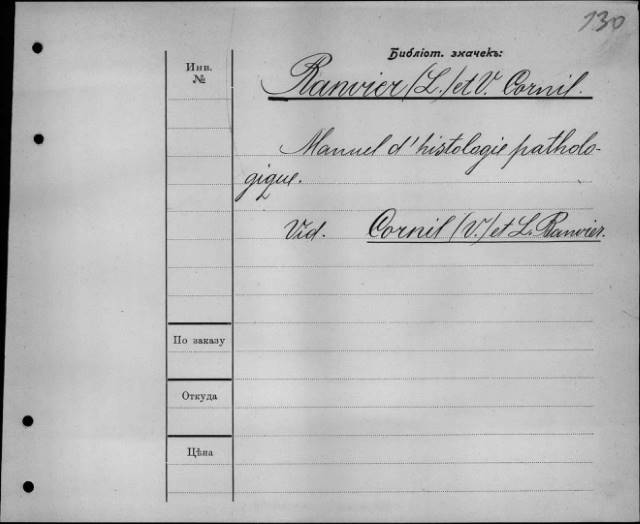 130
Библіот. значекъ:
Инв.
№
Ranvier (L.) et V. Cornil.
Manuel d'histologie patholo-
gique.
Vid. Cornil (V.) et L. Ranvier.
По заказу
Откуда
Цѣна